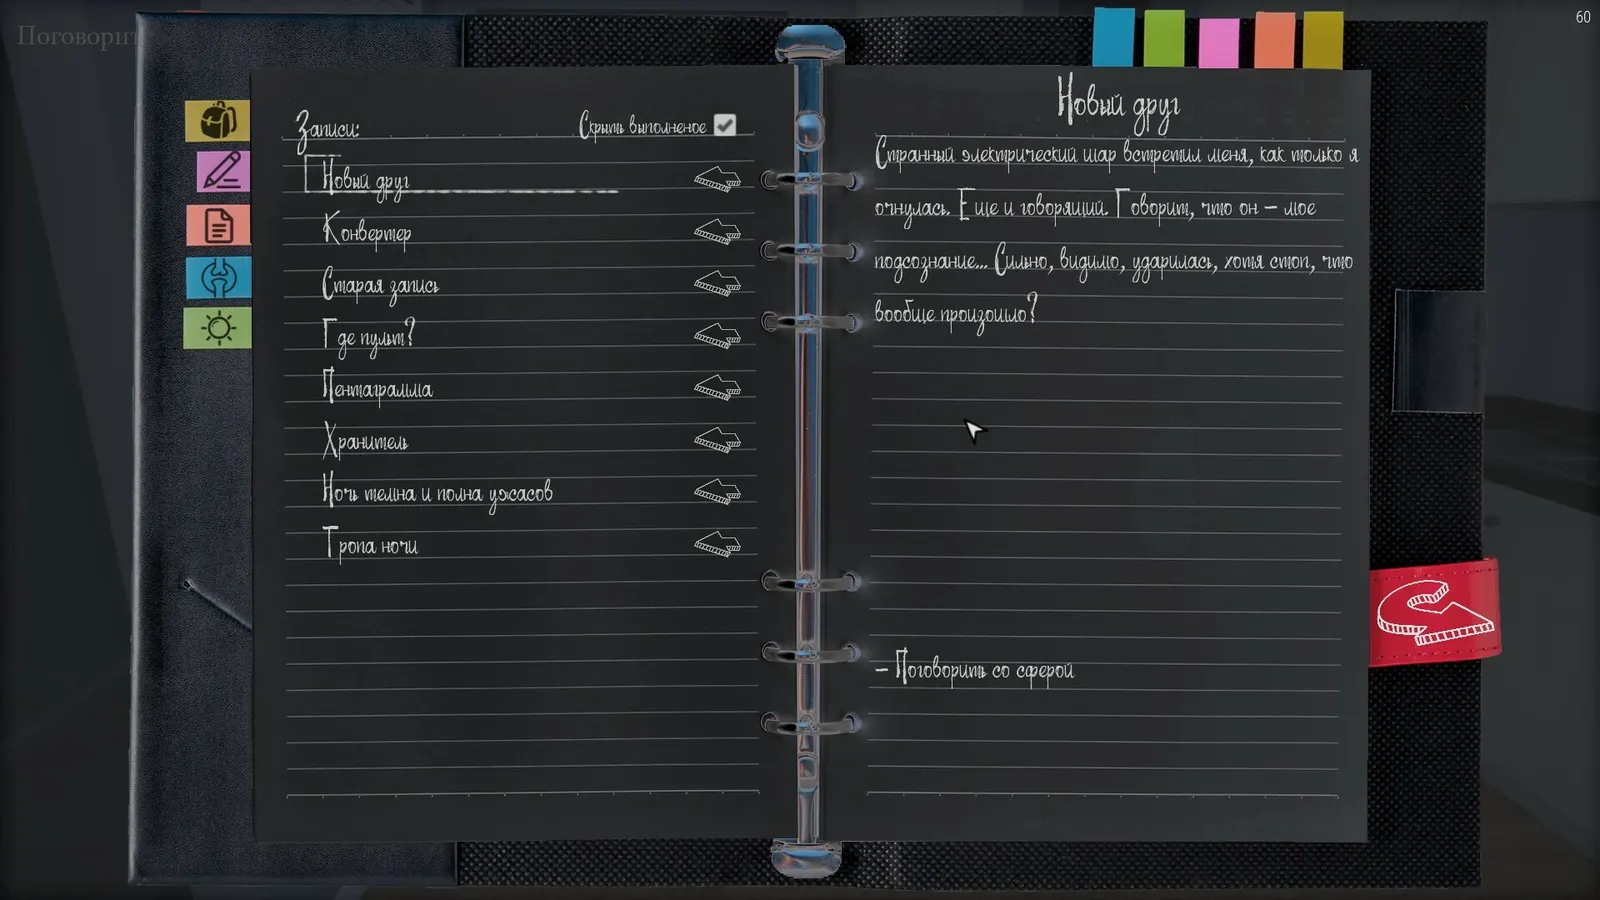 Поговорит
60
Записи:
Скрыть выполненое
Новый друг
Конвертер
Старая запись
Где пульт?
Пентаграмма
Хранитель
Ночь темна и полна ужасов
Тропа ночи
Новый друг
Странный электрический шар встретил меня, как только я
очнулась. Еще и говорящий. Говорит, что он – мое
подсознание... Сильно, видимо, ударилась, хотя стоп, что
вообще произошло?
– Поговорить со сферой